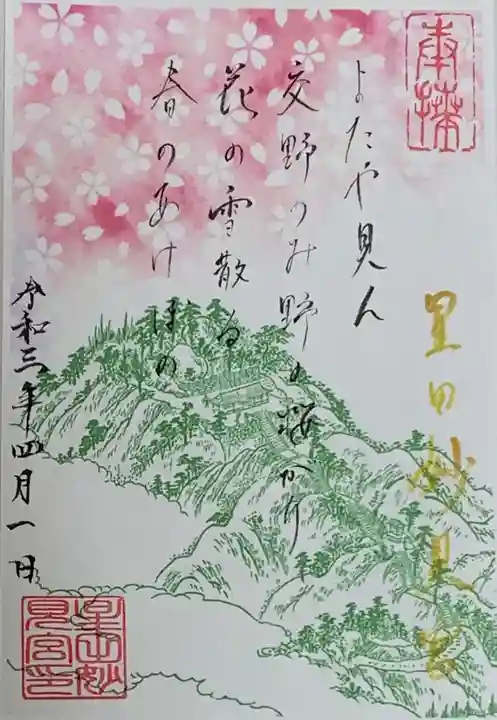 奉拝
星田妙見宮
またや見ん
交野のみ野の桜がり
花の雪散る
春のあけほの
令和三年四月一日
星田妙
見宮印